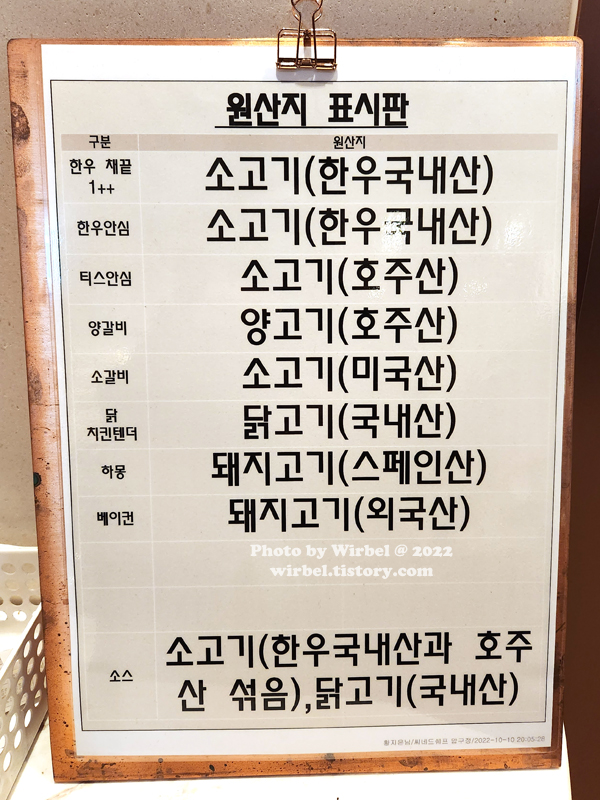 원산지 표시판
구분 원산지
한우 채끝 1++ 소고기(한우국내산)
한우안심 소고기(한우국내산)
티스안심 소고기(호주산)
양갈비 양고기(호주산)
소갈비 소고기(미국산)
닭 치킨텐더 닭고기(국내산)
하몽 돼지고기(스페인산)
베이컨 돼지고기(외국산)
Photo by Wirbel @ 2022
wirbel.tistory.com
소스 소고기(한우국내산과 호주
산 섞음),닭고기(국내산)
압구정/2022-10-10 20:05:28